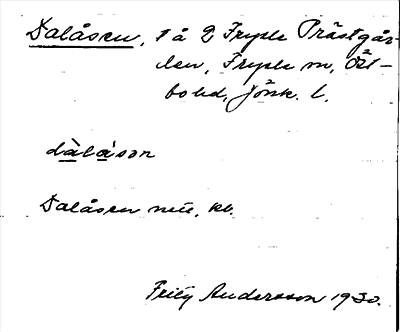 Dalåsen, 1 å 2 Fryele Prästgår-
den, Fryele sn, Öst-
bo hd, Jönk. l.
dàlåsən
Dalåsen neu. kb.
Fritz Andersson 1930.